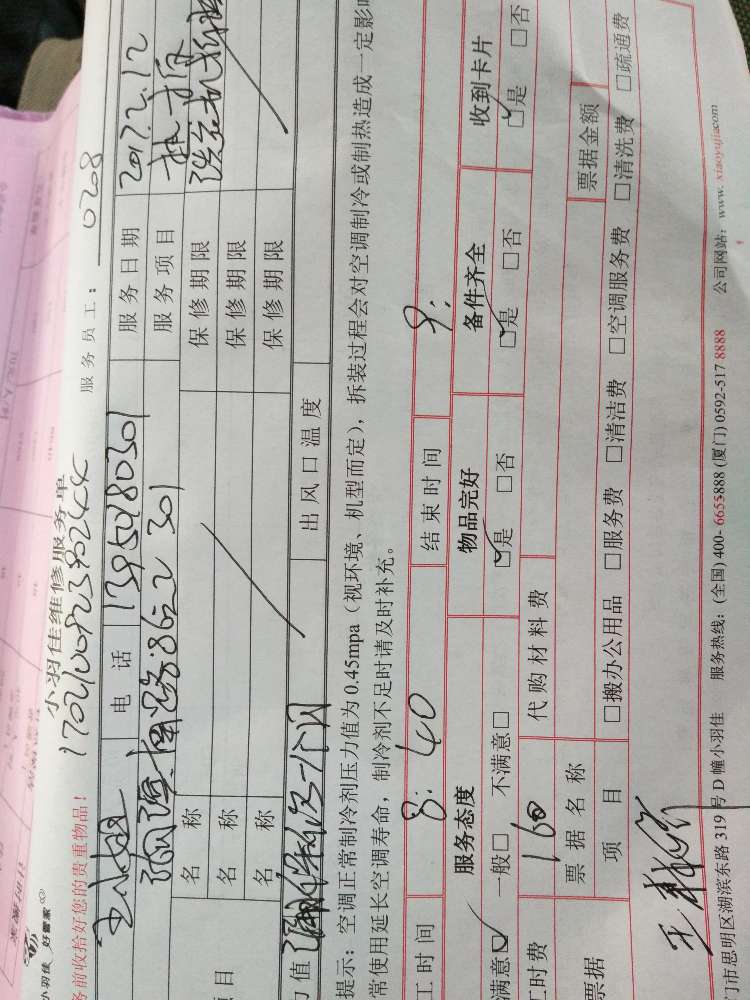 小羽佳维修服务单
小羽佳 好管家
170210082390244
服务员工： 0208
务前收拾好您的贵重物品！
电话
服务日期 2017.2.12
862 301
服务项目
名称
保修期限
名称
保修期限
项目
名称
保修期限
力值
出风口温度
提示：空调正常制冷剂压力值为 0.45mpa（视环境、机型而定），拆装过程会对空调制冷或制热造成一定影响
常使用延长空调寿命，制冷剂不足时请及时补充。
工时间 8:40 结束时间 9:
服务态度 物品完好 备件齐全 收到卡片
满意□ 一般□ 不满意□ □是 □否 □是 □否 □是 □否
工时费 160 代购材料费
票据 票据名称 票据金额
项目 □搬办公用品 □服务费 □清洁费 □空调服务费 □清洗费 □疏通费
门市思明区湖滨东路 319 号 D 幢小羽佳 服务热线：(全国) 400- 6655888 (厦门) 0592-517 8888 公司网站：www. xiaoyujia.com